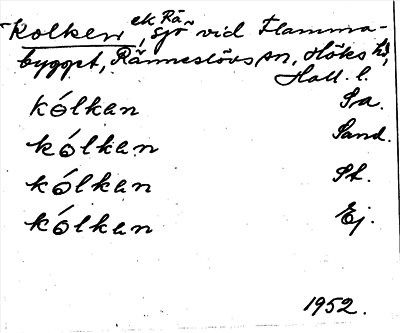 Kolken, ek Rä. sjö vid Flamma-
bygget, Ränneslövs sn, Höks hd,
Hall. l.
kólkan Sa.
kólkan Sand.
kólkan St.
kólkan Ej.
1952.